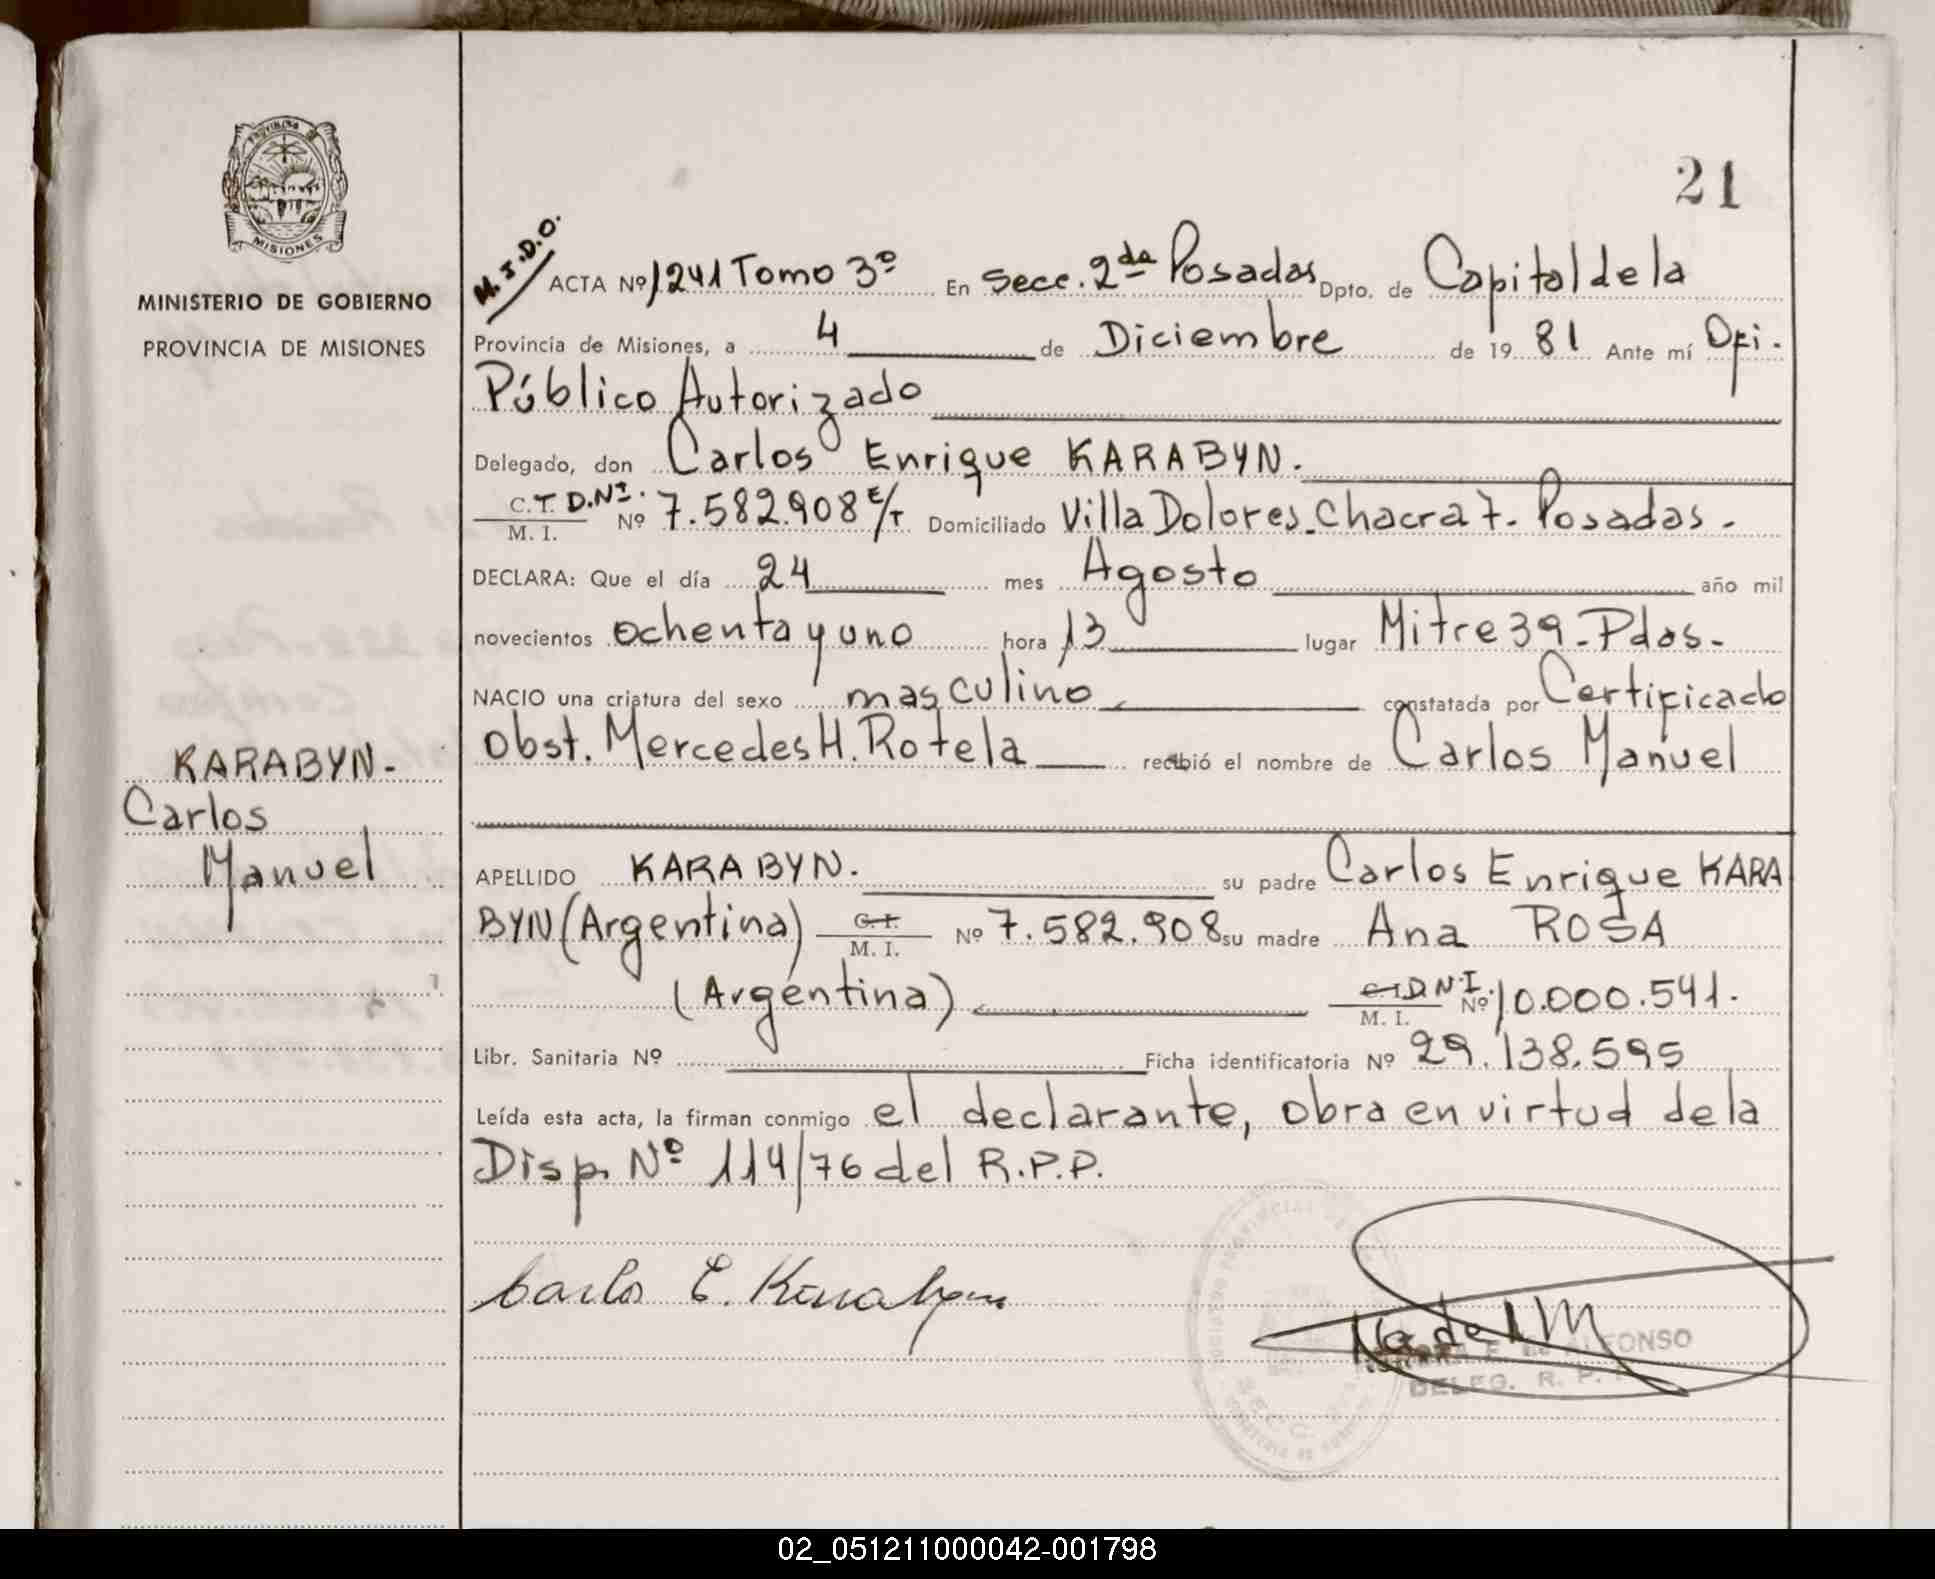 21
PROVINCIA DE
MISIONES
MINISTERIO DE GOBIERNO
PROVINCIA DE MISIONES
KARABYN-
Carlos
Manuel
M.I.D.O.
ACTA Nº 1241 Tomo 3º En Secc. 2da Posadas Dpto. de Capital de la
Provincia de Misiones, a 4 de Diciembre de 1981 Ante mí Ofi.
Público Autorizado
Delegado, don Carlos Enrique KARABYN.
C.T. D.NI. M. I. Nº 7.582.908 E/T Domiciliado Villa Dolores-Chacra 7. Posadas.
DECLARA: Que el día 24 mes Agosto año mil
novecientos ochenta y uno hora 13 lugar Mitre 39-Pdas-
NACIO una criatura del sexo masculino constatada por Certificado
Obst. Mercedes H. Rotela recibió el nombre de Carlos Manuel
APELLIDO KARABYN. su padre Carlos Enrique KARA
BYN (Argentina) C.I. M. I. Nº 7.582.908 su madre Ana ROSA
(Argentina) C.I. D.N.I. M. I. Nº 10.000.541.
Libr. Sanitaria Nº Ficha identificatoria Nº 29.138.595
Leída esta acta, la firman conmigo el declarante, obra en virtud de la
Disp. Nº 114/76 del R.P.P.
Carlos E. Karabyn
de ALFONSO
DELEG. R. P.
02_051211000042-001798